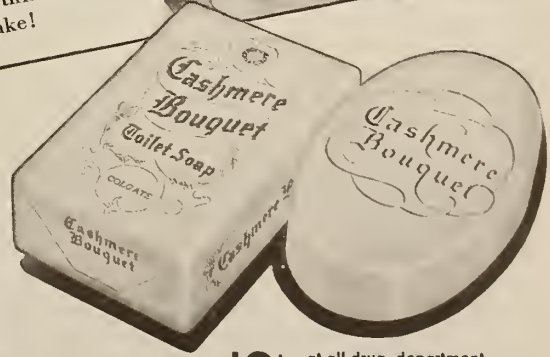 ake!
Cashmere
Bouquet
Toilet Soap
COLGATE
Cashmere
Bouquet
Cashmere
Cashmere
Bouquet
at all drug, department